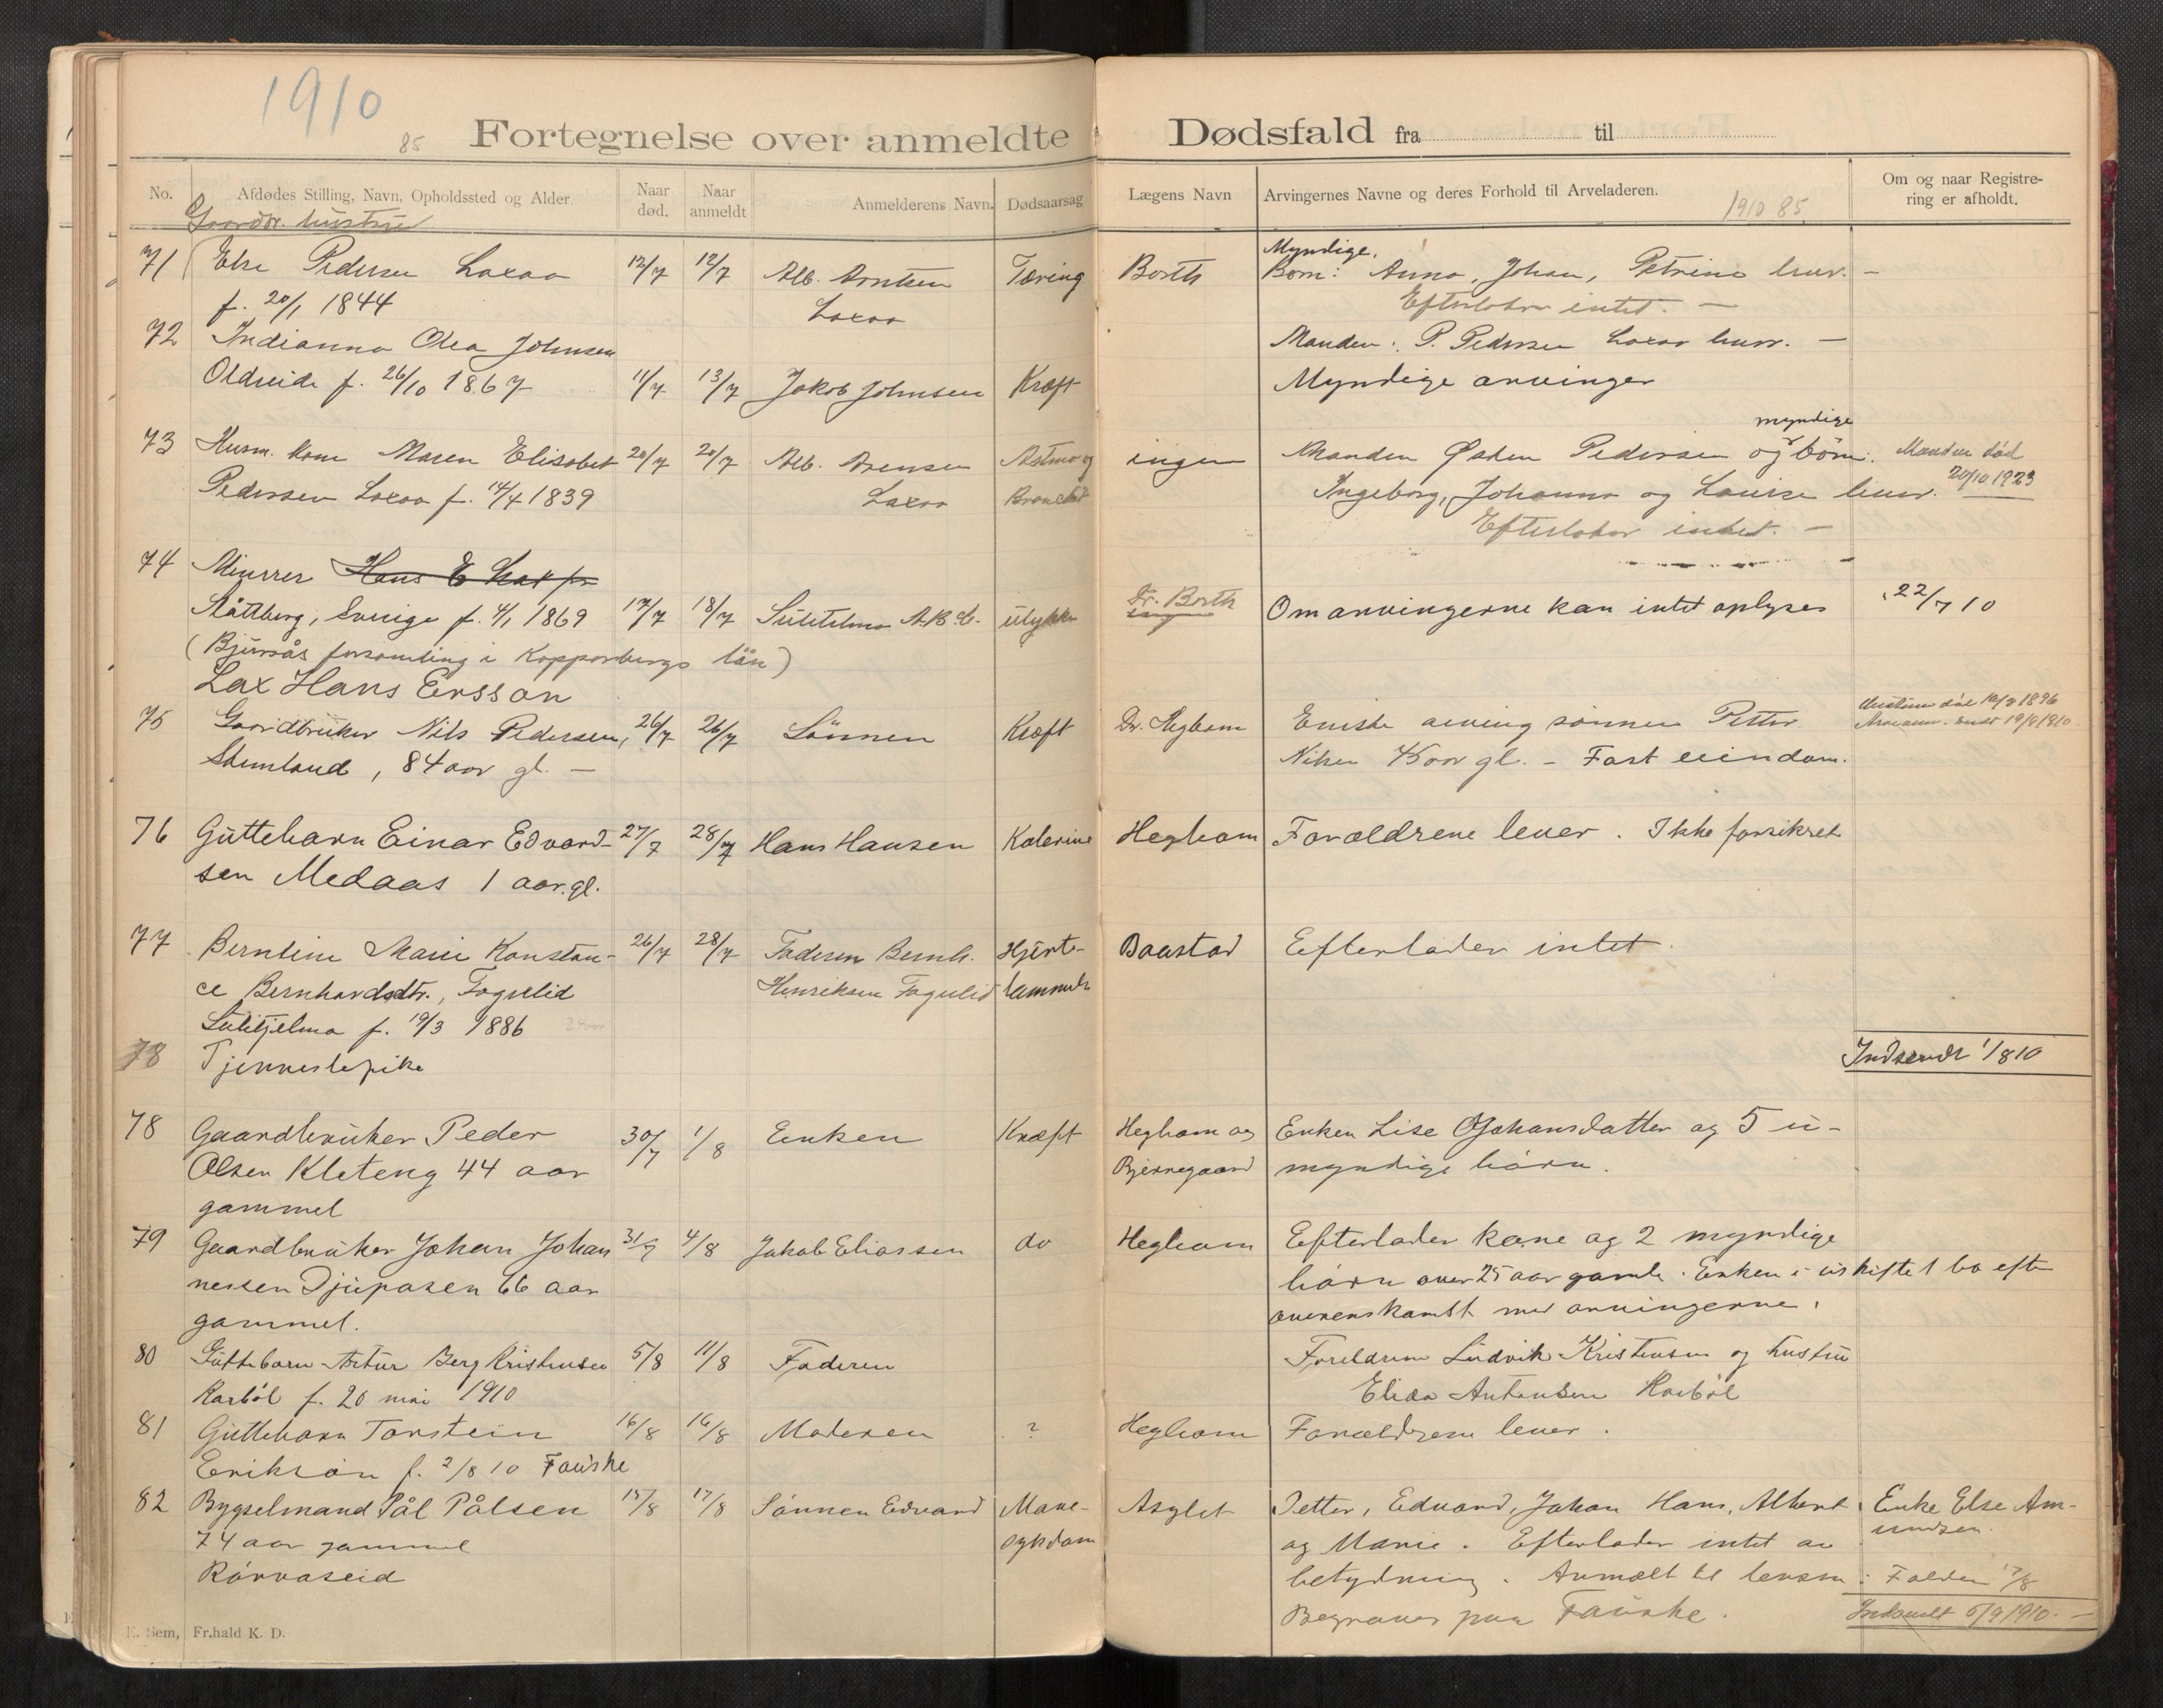 1910
85 Fortegnelse over anmeldte Dødsfald fra til
No. Afdødes Stilling, Navn, Opholdssted og Alder. Naar død. Naar anmeldt Anmelderens Navn. Dødsaarsag Lægens Navn Arvingernes Navne og deres Forhold til Arveladeren. 1910 85. Om og naar Registrering er afholdt.
Gaardbr. hustru
71 Else Pedersen Laxaa 12/7 12/7 Alb. Arntsen Tæring Borth Myndige. Børn: Anna, Johan, Petrine hver. –
f. 20/1 1844 Laxaa Efterlater intet. –
72 Indianna Olea Johnsen Manden: P. Pedersen Laxaa hver. –
Oldreide f. 26/10 1867 11/7 13/7 Jakob Johnsen Kræft Myndige arvinger
73 Husm. kone Maren Elisabet 20/7 20/7 Alb. Arensen Astma og ingen Manden Østen Pedersen og myndige børn: Manden død
Pedersen Laxaa f. 14/4 1839 Laxaa Bronchit Ingeborg, Johanna og Louise hver. 20/10 1923
Efterlater intet. –
74 Minører Hans E Lax fra
Råttberg, Sverige f. 4/1 1869 17/7 18/7 Sulitelma A.B. ulykke Dr. Borth ingen Om arvingerne kan intet oplyses 22/7 10
(Bjursås forsamling i Kopparbergs län)
Lax Hans Ersson
75 Gaardbruker Nils Pedersen, 26/7 26/7 Sønnen Kræft Dr. Heghom Eneste arving sønnen Petter Hustruen død 10/3 1896
Stemland, 84 aar gl. – Nilsen 45 aar gl. – Fast eiendom. 19/9 1910
76 Guttebarn Einar Edvard- 27/7 28/7 Hans Hansen Kolerine Heghom Forældrene lever. Ikke forsikret
sen Medaas 1 aar. gl.
77 Berntine Marie Konstan- 26/7 28/7 Faderen Bernh. Hjerte- Baastad Efterlader intet.
ce Bernhardsdtr., Fagerlid Henriksen Fagerlid lammelse
Sulitjelma f. 19/3 1886 24 aar
78 Tjenestepike Indsendt 1/8 10
78 Gaardbruker Peder 30/7 1/8 Enken Kræft Heghom og Enken Lise Johansdatter og 5 u-
Olsen Kleteng 44 aar Bjerregaard myndige børn.
gammel
79 Gaardbruker Johan Johan 31/7 4/8 Jakob Eliassen do Heghom Efterlader kone og 2 myndige
nessen Djupaasen 66 aar børn over 25 aar gamle. Enken i uskiftet bo efter
gammel. overenskomst med arvingerne.
80 Guttebarn Artur Berg Kristensen 5/8 11/8 Faderen Foreldrene Ludvik Kristensen og hustru
Karbøl f. 20 mai 1910 Elida Antonsen Karbøl
81 Guttebarn Torstein 16/8 16/8 Moderen ? Heghom Forældrene lever.
Eriksøn f. 2/8 10 Fauske
82 Bygselmand Pål Pålsen 15/8 17/8 Sønnen Edvard Mave- Asylet Petter, Edvard, Johan Hans, Albert Enke Else Am-
74 aar gammel sykdom og Marie. Efterlader intet av undsen.
Rørvaseid betydning. Anmælt til lensm. i Folden 17/8
Begraves paa Fauske. Indsendt 5/9 1910. –
E. Sem, Fr.hald K. D.